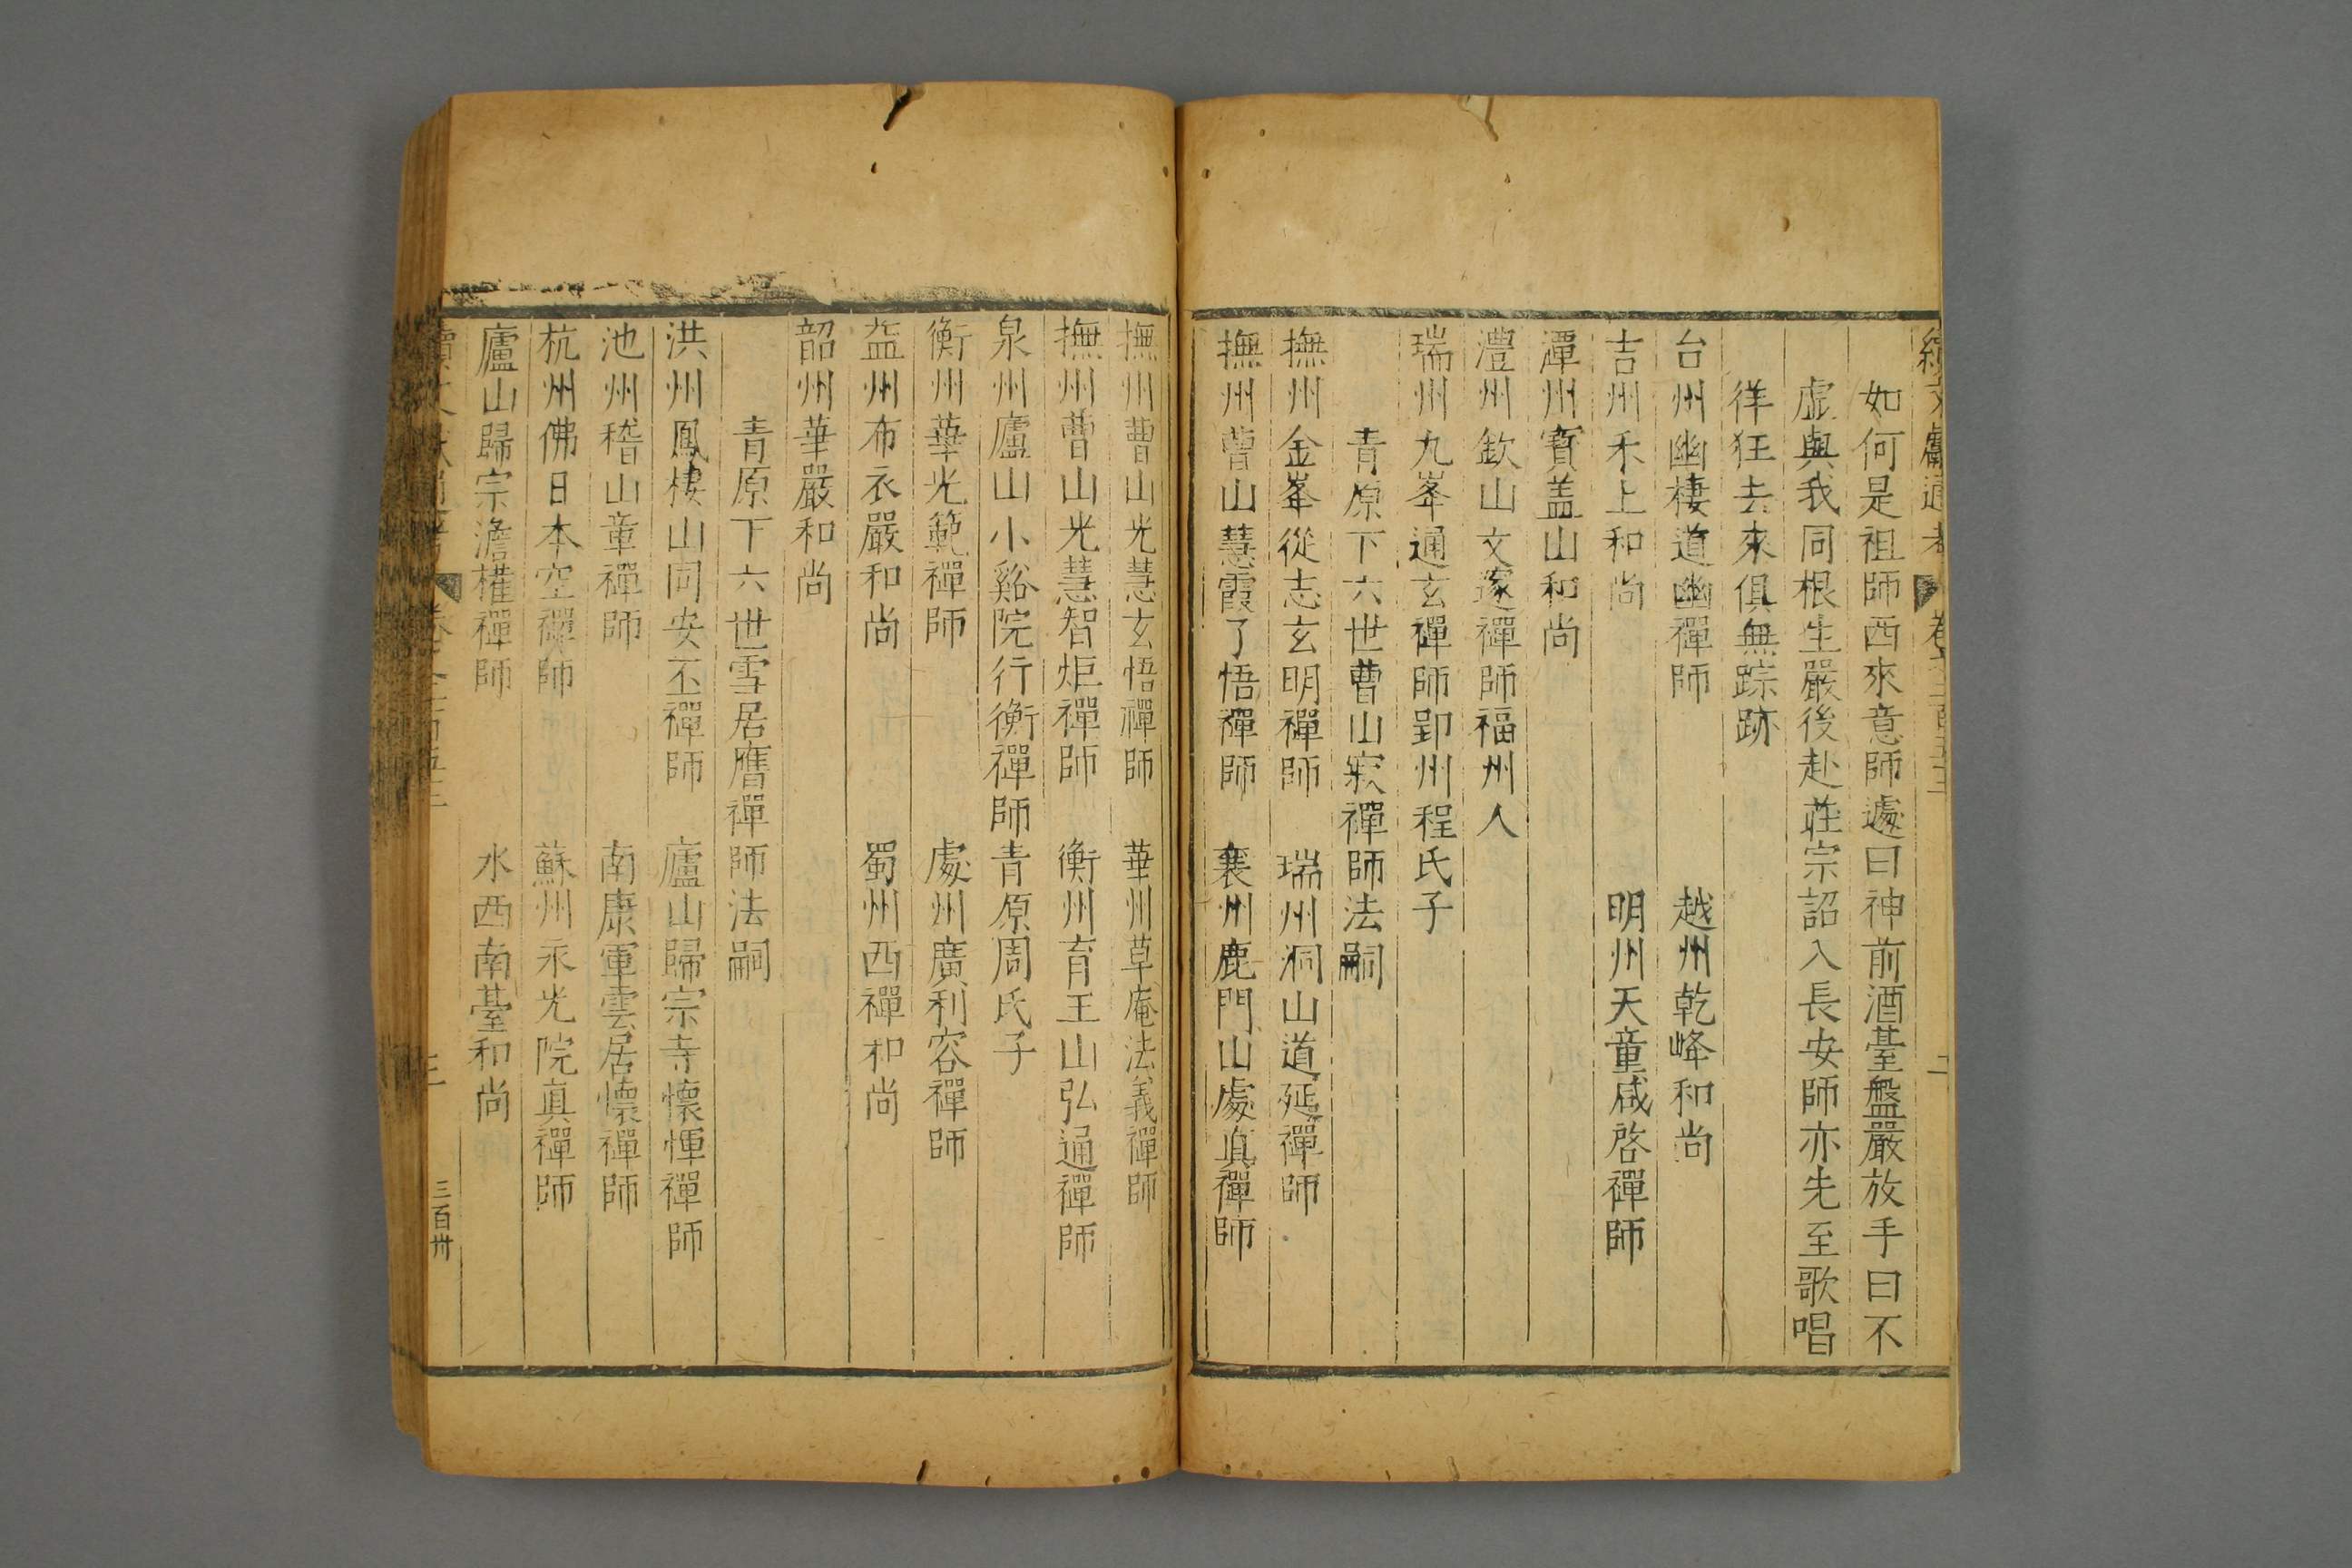 續文獻通考 卷二百五十二 二
如何是祖師西來意師遽曰神前酒臺盤嚴放手曰不
虛與我同根生嚴後赴莊宗詔入長安師亦先至歌唱
徉狂去來俱無踪跡
台州幽棲道幽禪師 越州乾峰和尚
吉州禾上和尚 明州天童咸啓禪師
潭州寳盖山和尚
澧州欽山文邃禪師福州人
瑞州九峯通玄禪師郢州程氏子
青原下六世曹山寂禪師法嗣
撫州金峯從志玄明禪師 瑞州洞山道延禪師
撫州曹山慧霞了悟禪師 襄州鹿門山處真禪師
撫州曹山光慧玄悟禪師 華州草庵法義禪師
撫州曹山光慧智炬禪師 衡州育王山弘通禪師
泉州廬山小谿院行衡禪師青原周氏子
衡州華光範禪師 處州廣利容禪師
益州布衣嚴和尚 蜀州西禪和尚
韶州華嚴和尚
青原下六世雪居膺禪師法嗣
洪州鳳棲山同安丕禪師 廬山歸宗寺懷惲禪師
池州稽山章禪師 南康軍雲居懷禪師
杭州佛日本空禪師 蘇州永光院真禪師
廬山歸宗澹權禪師 水西南臺和尚
三 三百卅